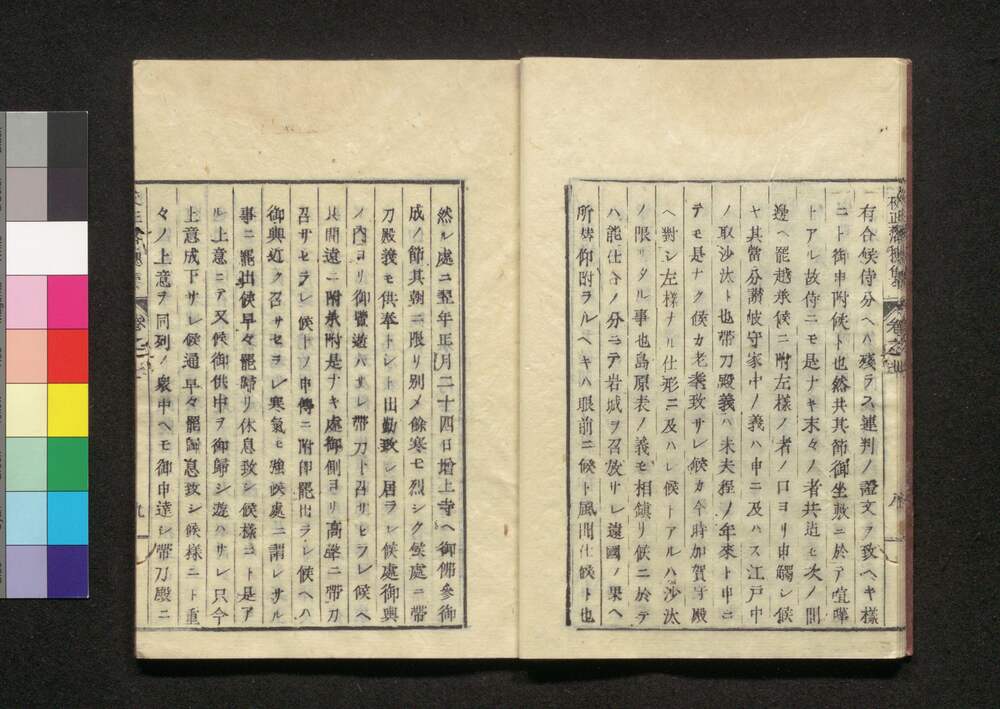 有合候侍分ヘハ殘ラス連判ノ證文ヲ致ヘキ樣
ニト御申附候ト也然共其節御坐敷ニ於テ喧嘩
トアル故侍ニモ是ナキ末々ノ者共迄モ次ノ間
邊ヘ罷越承候ニ附左樣ノ者ノ口ヨリ申觸レ候
ヤ其當分讃岐守家中ノ義ハ申ニ及ハス江戸中
ノ取沙汰ト也帶刀殿義ハ未夫程ノ年來ト申ニ
テモ是ナク候カ老義致サレ候カ今時加賀守殿
ヘ對シ左樣ナル仕形ニ及ハレ候トアルハ沙汰
ノ限リタル事也島原表ノ義モ相鎮リ候ニ於テ
ハ能仕合ノ分ニテ岩城ヲ召放サレ遠國ノ果ヘ
所替仰附ラルヘキハ眼前ニ候ト風聞仕候ト也
然ル處ニ翌年正月二十四日增上寺ヘ御佛參御
成ノ節其朝ニ限リ別メ餘寒モ烈シク候處ニ帶
刀殿義モ供奉トシト出勤致シ居ラレ候處御輿
ノ内ヨリ御覽遊ハサレ帶刀ト召サセラレ候ヘ
共間遠ニ附承附是ナキ處御側ヨリ高聲ニ帶刀
召サセラレ候トノ申傳ニ附即罷出ラレ候ヘハ
御輿近ク召サセヲレ寒氣モ強候處ニ謂レサル
事ニ罷出候早々罷歸リ休息致シ候樣ニト是ア
ル上意ニテ又候御供中ヲ御歸シ遊ハサレ只今
上意成下サレ候通早々罷歸息致シ候樣ニト重
々ノ上意ヲ同列ノ衆中ヘモ御申達シ帶刀殿ニ
九